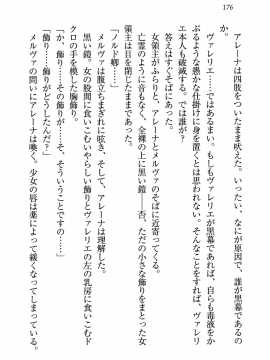 176
アレーナは四肢をつたったまま吠えた。いったい、なにが原因で、誰が黒幕であるの
か。
ヴァレリエ……ではない。もしもヴァレリエが黒幕であれば、自らも毒液をか
ぶるような愚かな仕掛けに身を置くとは思われない。そんなことをすれば、ヴァレリ
エ本人も破滅する。では誰が？
答えはすぐそばにあった。
女領主が、アレーナとメルヴァのそばに近寄ってくる。
亡霊のように青ざめ、全裸の上に黒い鎧――否、ただの小さな飾りをまとった女
領主は目を閉じたままであった。
「ノルド卿……」
メルヴァは腹立ちまぎれに呟き、そして、アレーナは理解した。
黒い鎧。女の股間に食いこむいやらしい飾りとヴァレリエの左の乳房に食いこむド
クロの手を模した胸飾り。
「か、飾り……その飾りが……そ、そういうことですの……」
「飾り！ 飾りがどうしたんだ？」
メルヴァの問いにアレーナは喚く。少女の唇は薬によって緩くなってしまってい
る。